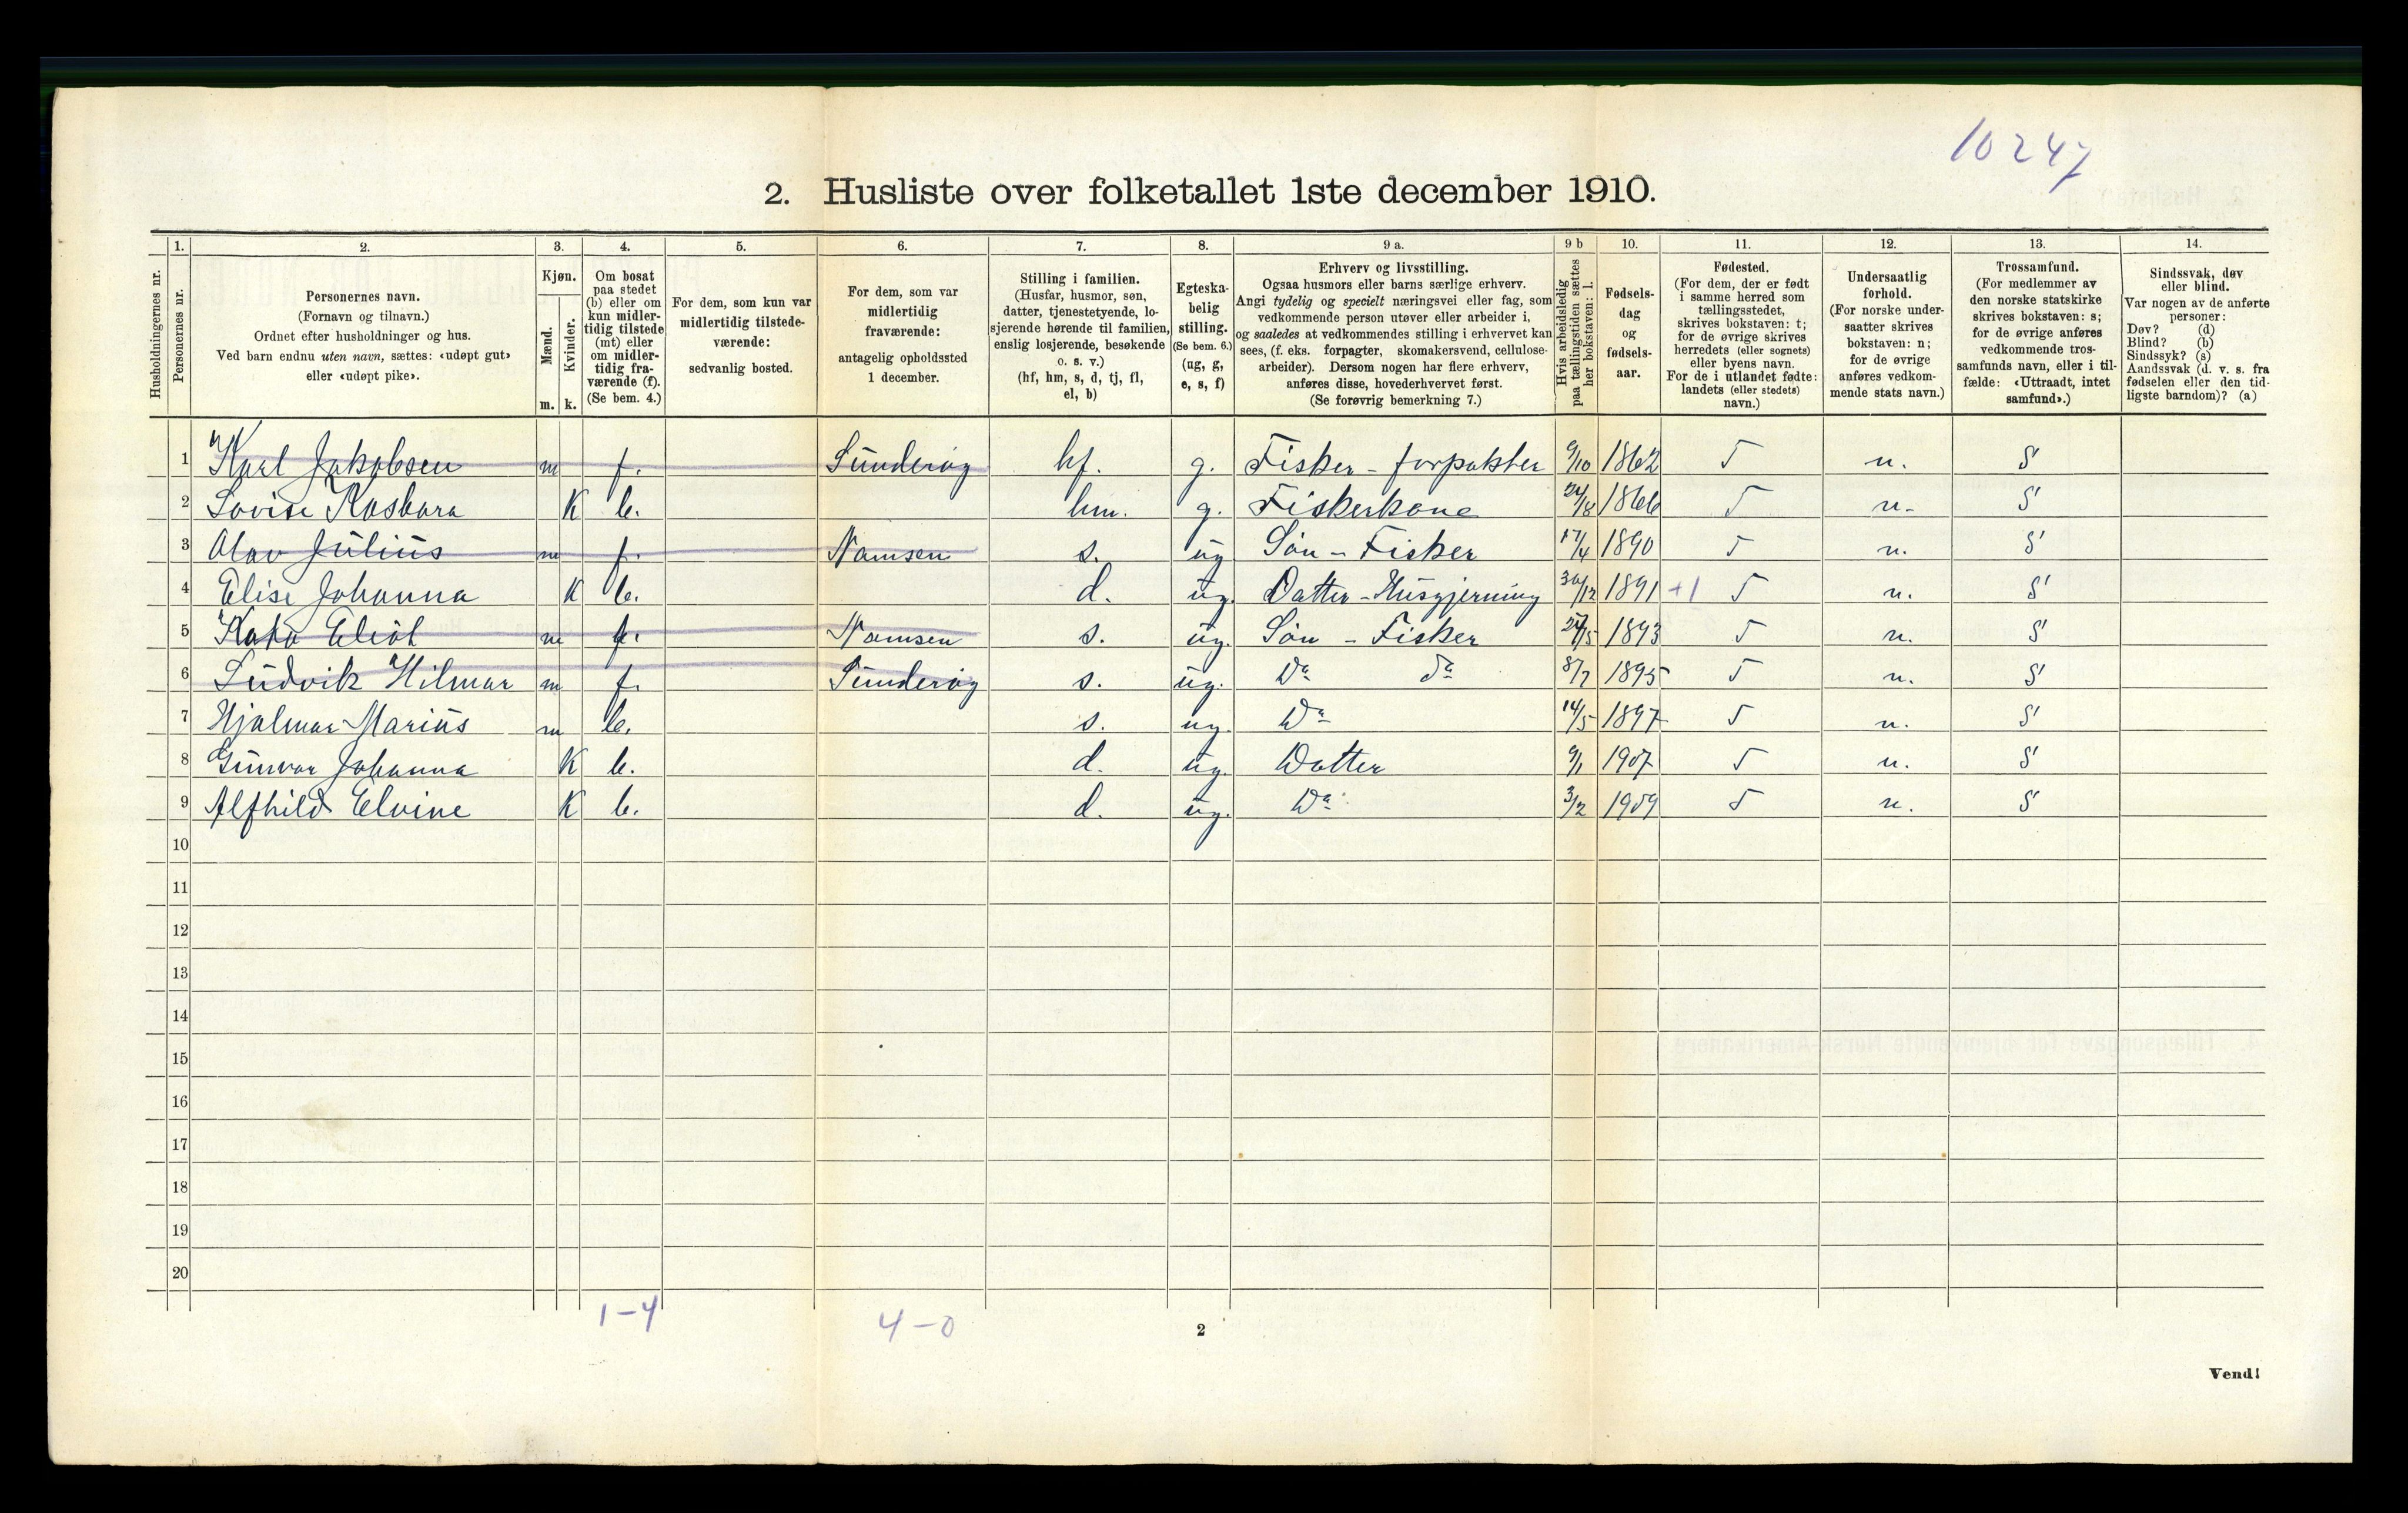 10247
2. Husliste over folketallet 1ste december 1910.
Husholdningernes nr.
1. Personernes nr.
2. Personernes navn. (Fornavn og tilnavn.) Ordnet efter husholdninger og hus. Ved barn endnu uten navn, sættes: «udøpt gut» eller «udøpt pike».
3. Kjøn. Mænd. m. Kvinder. k.
4. Om bosat paa stedet (b) eller om kun midlertidig tilstede (mt) eller om midlertidig fraværende (f). (Se bem. 4.)
5. For dem, som kun var midlertidig tilstedeværende: sedvanlig bosted.
6. For dem, som var midlertidig fraværende: antagelig opholdssted 1 december.
7. Stilling i familien. (Husfar, husmor, søn, datter, tjenestetyende, losjerende hørende til familien, enslig losjerende, besøkende o. s. v.) (hf, hm, s, d, tj, fl, el, b)
8. Egteskabelig stilling. (Se bem. 6.) (ug, g, e, s, f)
9 a. Erhverv og livsstilling. Ogsaa husmors eller barns særlige erhverv. Angi tydelig og specielt næringsvei eller fag, som vedkommende person utøver eller arbeider i, og saaledes at vedkommendes stilling i erhvervet kan sees, (f. eks. forpagter, skomakersvend, cellulosearbeider). Dersom nogen har flere erhverv, anføres disse, hovederhvervet først. (Se forøvrig bemerkning 7.)
9 b Hvis arbeidsledig paa tællingstiden sættes her bokstaven: l.
10. Fødselsdag og fødselsaar.
11. Fødested. (For dem, der er født i samme herred som tællingsstedet, skrives bokstaven: t; for de øvrige skrives herredets (eller sognets) eller byens navn. For de i utlandet fødte: landets (eller stedets) navn.)
12. Undersaatlig forhold. (For norske undersaatter skrives bokstaven: n; for de øvrige anføres vedkommende stats navn.)
13. Trossamfund. (For medlemmer av den norske statskirke skrives bokstaven: s; for de øvrige anføres vedkommende trossamfunds navn, eller i tilfælde: «Uttraadt, intet samfund».)
14. Sindssvak, døv eller blind. Var nogen av de anførte personer: Døv? (d) Blind? (b) Sindssyk? (s) Aandssvak (d. v. s. fra fødselen eller den tidligste barndom)? (a)
1 Karl Jakobsen m f. Sunderøy hf. g. Fisker - forpakter 9/10 1862 T n. S
2 Lovise Kasbara K b. hm. g. Fiskerkone 24/8 1866 T n. S
3 Olav Julius m f. Namsen s. ug Søn - Fisker 17/4 1890 T n. S
4 Elise Johanna K b. d. ug. Datter - Husgjerning 30/12 1891 +1 T n. S
5 Kato Eliot m f. Namsen s. ug. Søn - Fisker 27/5 1893 T n. S
6 Ludvik Hilmar m f. Sunderøy s. ug. Do do 8/7 1895 T n. S
7 Hjalmar Marius m b. s. ug. Do 14/5 1897 T n. S
8 Gunvor Johanna K b. d. ug. Datter 9/1 1907 T n. S
9 Alfhild Elvine K b. d. ug. Do 3/2 1909 T n. S
10
11
12
13
14
15
16
17
18
19
20
1-4 4-0
2
Vend!